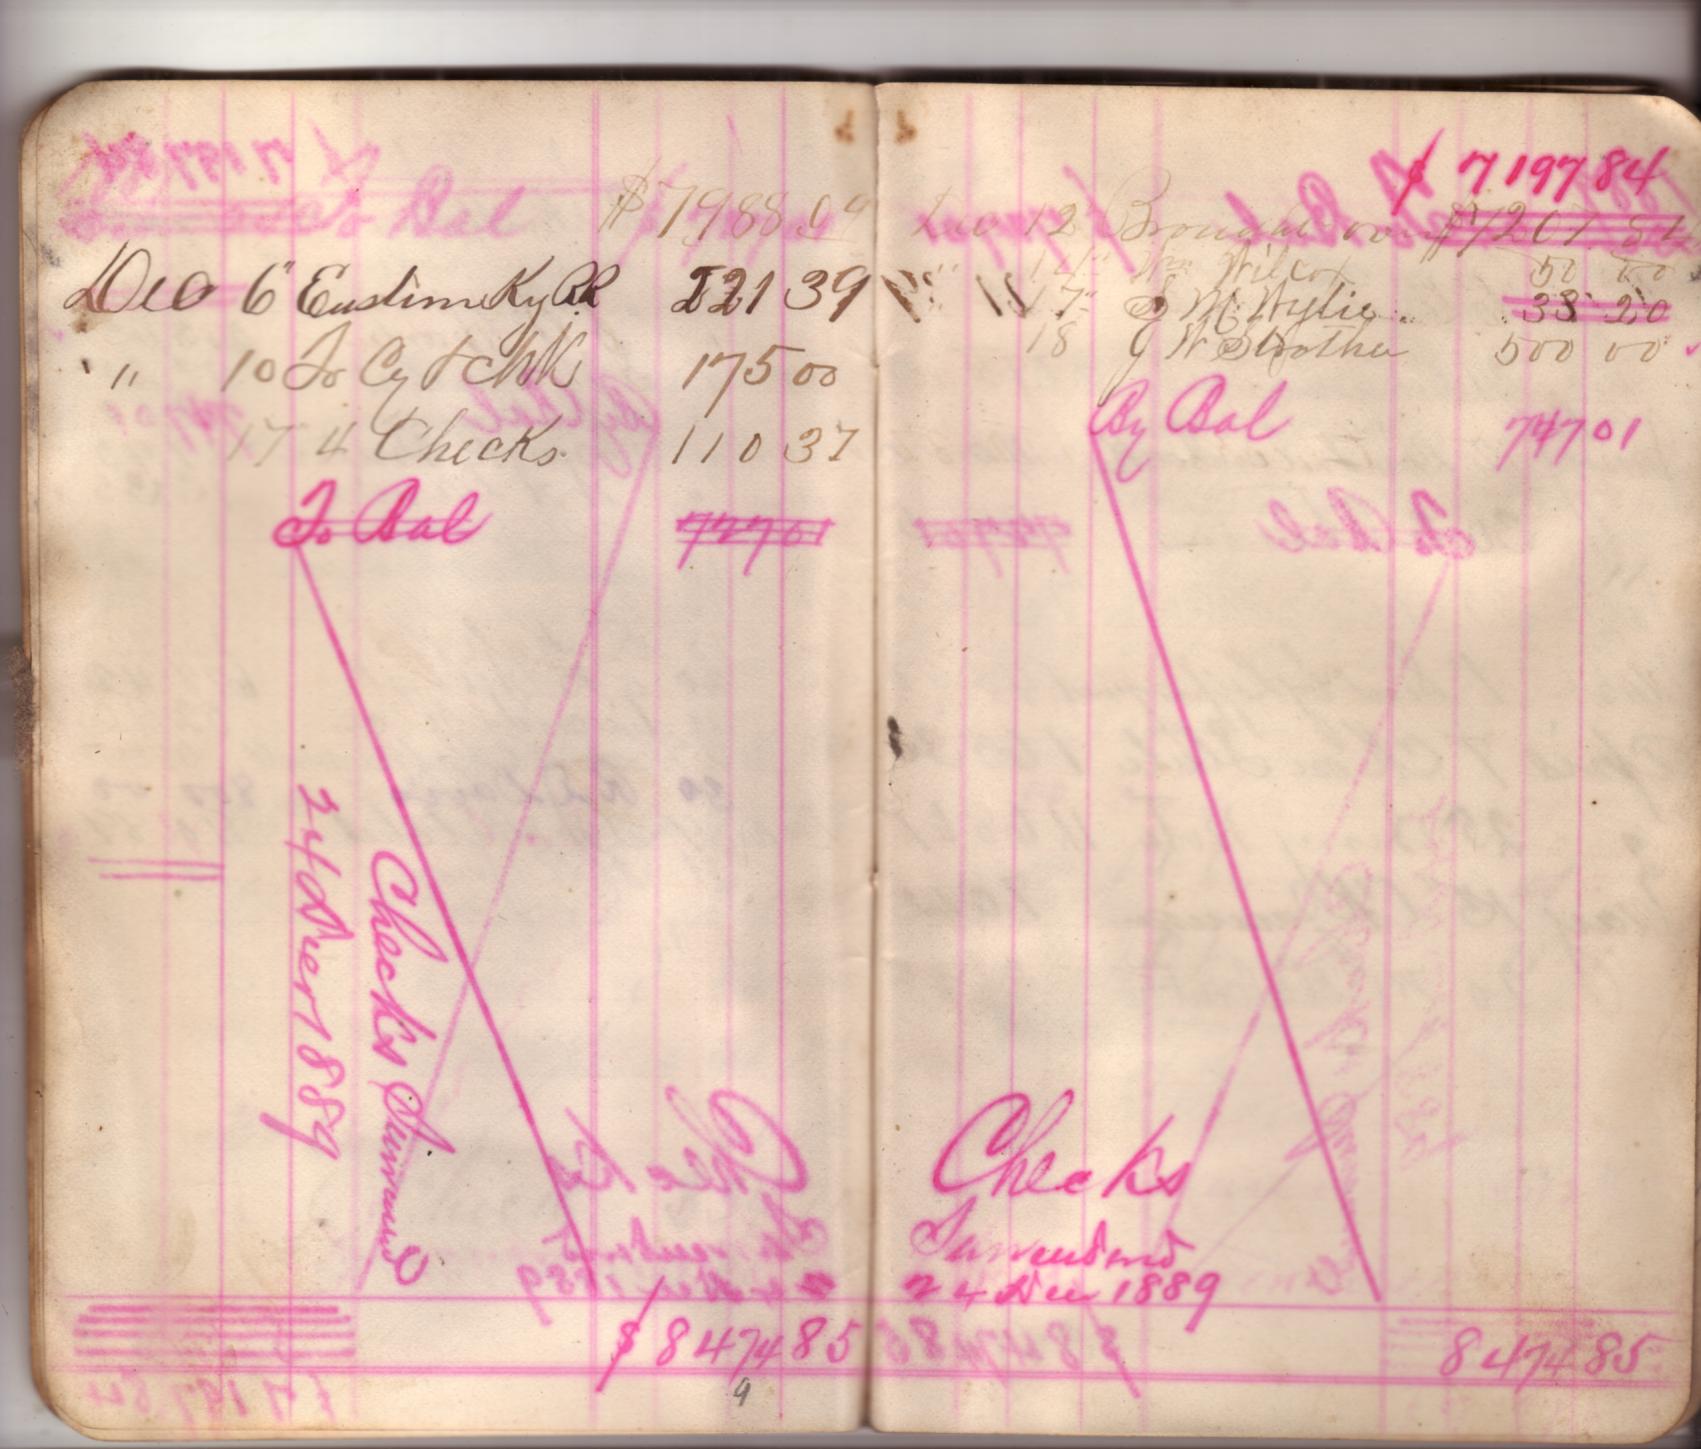 $7988 09
Dec 6" Eastern Ky RR 221 39
" 10 To Cy & Chk 175 00
17 4 Checks 110 37
To Bal 747 01
Checks Surrend
24 Decr 1889
$8474 85
9
$7197 84
Dec 12 Brought over $7207 84
14" Wm Wilcox 50 00
" 17" J M Wylie 38 20
18 J W Strother 500 00
By Bal 747 01
Checks
Surrendered
24 Dec 1889
8474 85